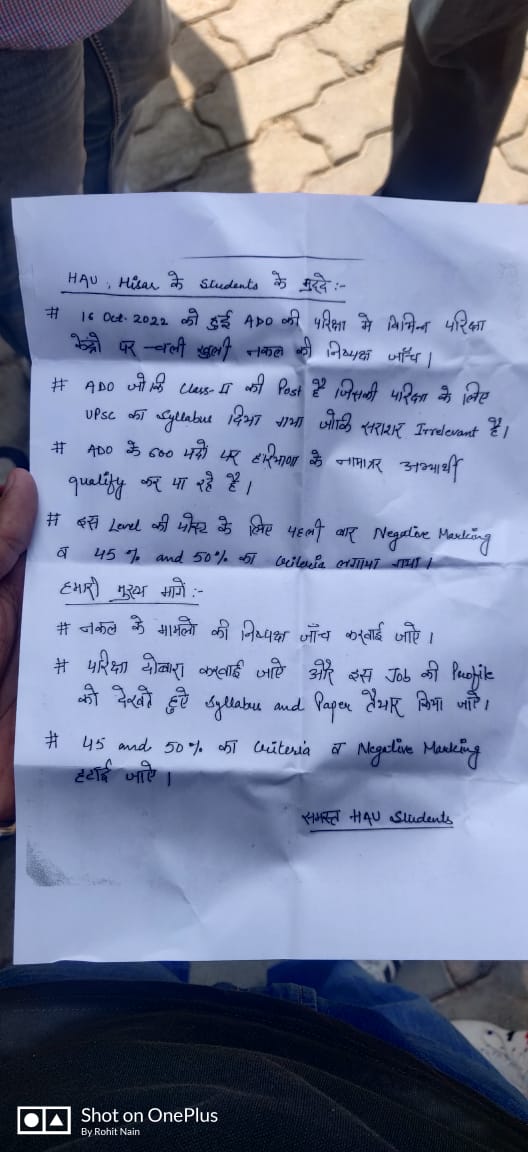 HAU, Hisar के Students के मुद्दे :-
# 16 Oct. 2022 को हुई ADO की परिक्षा मे विभिन्न परिक्षा
केंद्रो पर चली खुली नकल की निष्पक्ष जाँच।
# ADO जोकि Class-II की Post है जिसकी परिक्षा के लिए
UPSC का Syllabus दिया गया जोकि सरासर Irrelevant है।
# ADO के 600 पदो पर हरियाणा के नाममात्र अभ्यार्थी
qualify कर पा रहे है।
# इस Level की पोस्ट के लिए पहली बार Negative Marking
व 45% and 50% का Criteria लगाया गया।
हमारी मुख्य मांगे :-
# नकल के मामलो की निष्पक्ष जाँच करवाई जाऐ।
# परिक्षा दोबारा करवाई जाऐ और इस Job की Profile
को देखते हुऐ Syllabus and Paper तैयार किया जाऐ।
# 45 and 50% का Criteria व Negative Marking
हटाई जाऐ।
समस्त HAU Students
Shot on OnePlus
By Rohit Nain